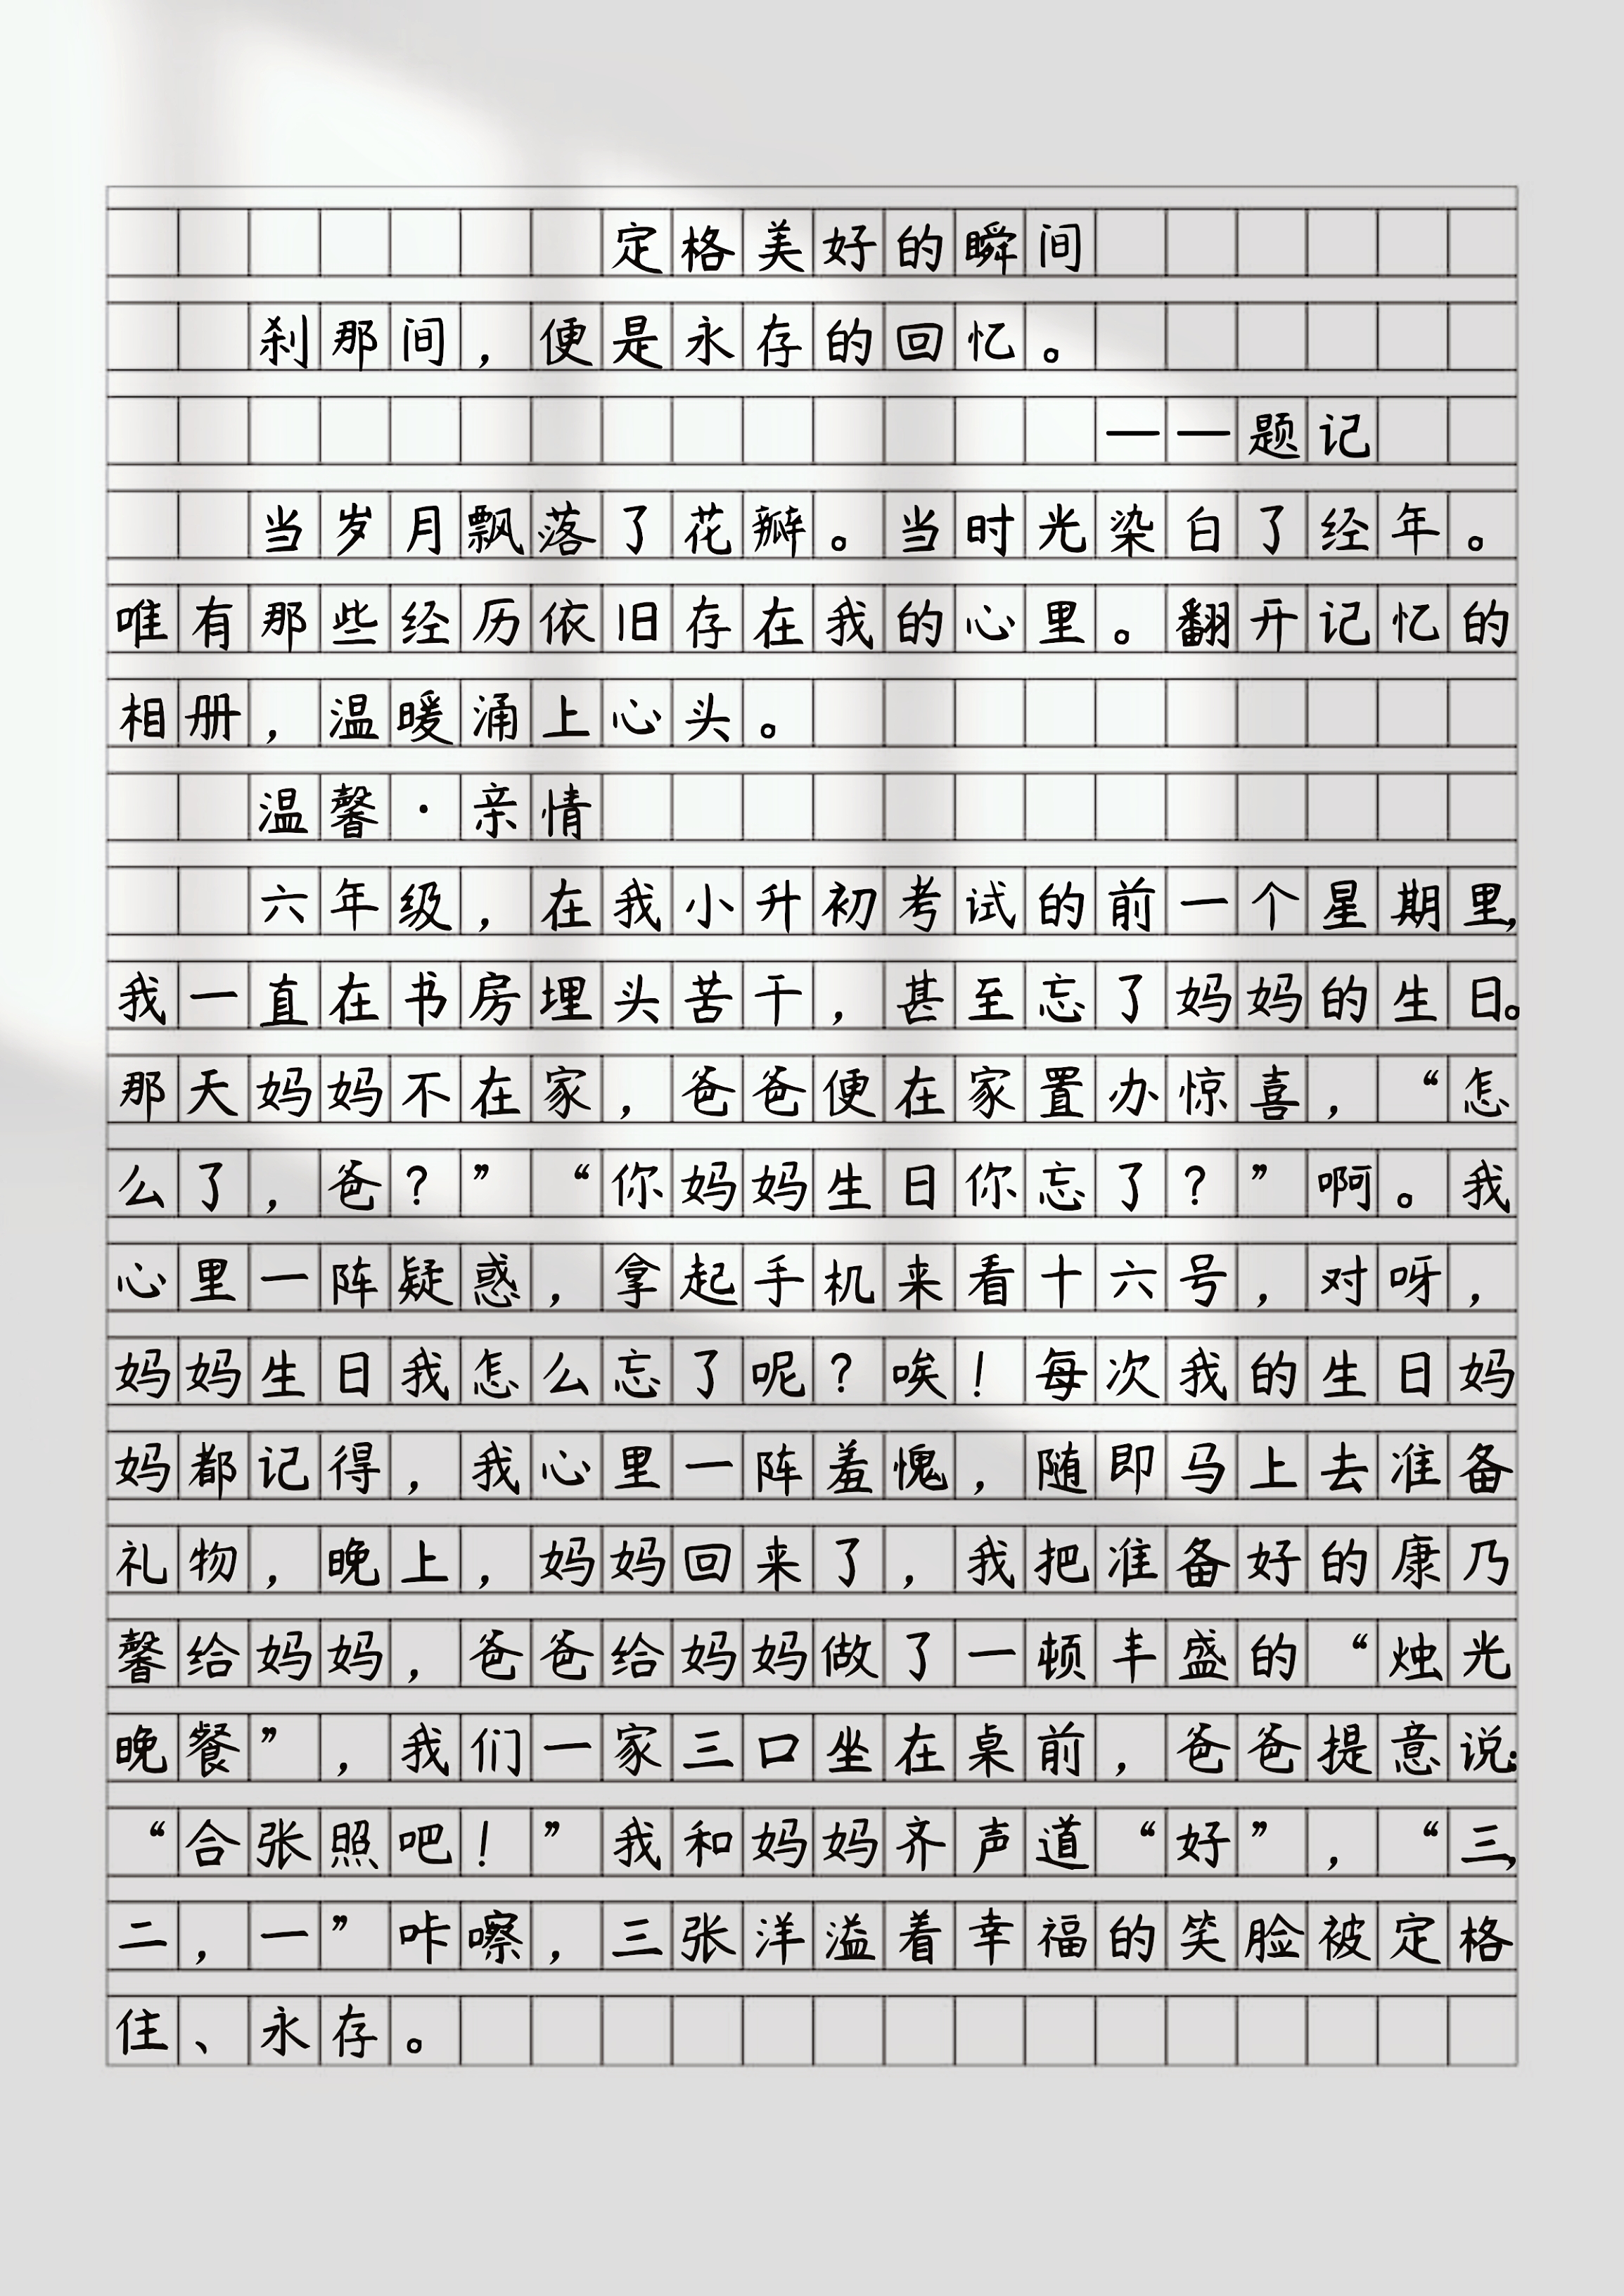 定格美好的瞬间
刹那间，便是永存的回忆。
——题记
当岁月飘落了花瓣。当时光染白了经年。
唯有那些经历依旧存在我的心里。翻开记忆的
相册，温暖涌上心头。
温馨·亲情
六年级，在我小升初考试的前一个星期里，
我一直在书房埋头苦干，甚至忘了妈妈的生日。
那天妈妈不在家，爸爸便在家置办惊喜，“怎
么了，爸？”“你妈妈生日你忘了？”啊。我
心里一阵疑惑，拿起手机来看十六号，对呀，
妈妈生日我怎么忘了呢？唉！每次我的生日妈
妈都记得，我心里一阵羞愧，随即马上去准备
礼物，晚上，妈妈回来了，我把准备好的康乃
馨给妈妈，爸爸给妈妈做了一顿丰盛的“烛光
晚餐”，我们一家三口坐在桌前，爸爸提意说：
“合张照吧！”我和妈妈齐声道“好”，“三，
二，一”咔嚓，三张洋溢着幸福的笑脸被定格
住、永存。